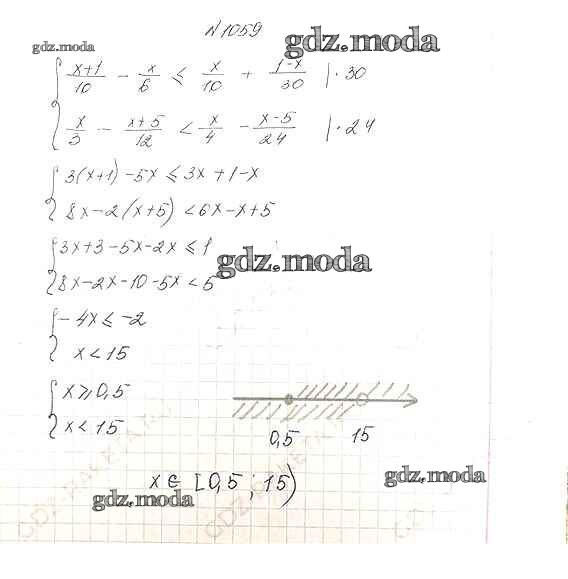 №1059
gdz.moda
gdz.moda
{ (x+1)/10 - x/6 ≤ x/10 + (1-x)/30 |·30
x/3 - (x+5)/12 < x/4 - (x-5)/24 |·24
{ 3(x+1)-5x ≤ 3x+1-x
8x-2(x+5) < 6x-x+5
{ 3x+3-5x-2x ≤ 1
gdz.moda
8x-2x-10-5x < 5
{ -4x ≤ -2
x < 15
{ x ≥ 0,5
x < 15
0,5 15
x ∈ [0,5; 15)
gdz.moda
gdz.moda